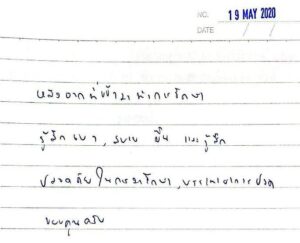 NO. 19 MAY 2020
DATE / /
หลังจากที่เข้ามาทำการรักษา
รู้สึกเบา, สบาย ขึ้น และรู้สึก
ปลอดภัยในการมารักษา, บรรเทาอาการปวด
ขอบคุณครับ